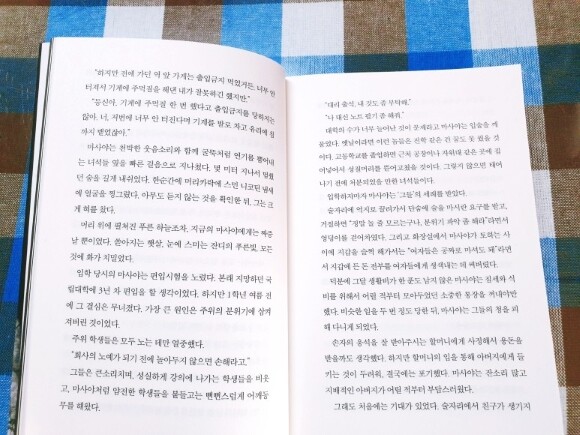 "하지만 전에 가던 역 앞 가게는 출입금지 먹었거든. 너무 안
터져서 기계에 주먹질을 해댄 내가 잘못하긴 했지만."
"등신아, 기계에 주먹질 한 번 했다고 출입금지를 당하지는
않아. 너, 저번에 너무 안 터진다며 기계를 발로 차고 유리에 침
까지 뱉었잖아."
마사야는 천박한 웃음소리와 함께 굴뚝처럼 연기를 뿜어내
는 녀석들 옆을 빠른 걸음으로 지나쳤다. 몇 미터 지나서 멈췄
던 숨을 길게 내쉬었다. 한순간에 머리카락에 스민 니코틴 냄새
에 얼굴을 찡그렸다. 아무도 듣지 않는 것을 확인한 뒤, 그는 크
게 혀를 찼다.
머리 위에 펼쳐진 푸른 하늘조차, 지금의 마사야에게는 짜증
날 뿐이었다. 쏟아지는 햇살, 눈에 스미는 잔디의 푸른빛, 모든
것에 화가 치밀었다.
입학 당시의 마사야는 편입시험을 노렸다. 본래 지망하던 국
립대학에 3년 차 편입을 할 생각이었다. 하지만 1학년 여름 전
에 그 결심은 무너졌다. 가장 큰 원인은 주위의 분위기에 삼켜
져버린 것이었다.
주위 학생들은 모두 노는 데만 열중했다.
"회사의 노예가 되기 전에 놀아두지 않으면 손해라고."
그들은 큰소리치며, 성실하게 강의에 나가는 학생들을 비웃
고, 마사야처럼 얌전한 학생들을 붙들고는 뻔뻔스럽게 어깨동
무를 해왔다.
"대리 출석, 내 것도 좀 부탁해."
"나 대신 노트 필기 좀 해줘."
대학의 수가 너무 늘어난 것이 못쓰라고 마사야는 입술을 깨
물었다. 옛날이라면 이런 놈들은 진학 같은 건 꿈도 못 꿨을 것
이다. 고등학교를 졸업하면 근처 공장이나 자위대 같은 곳에 집
어넣어서 성질머리를 뜯어고쳤을 것이다. 그렇지 않으면 태어
나기 전에 처분되었을 만한 녀석들이다.
입학하자마자 마사야는 '그들'의 세례를 받았다.
술자리에 억지로 끌려가서 단숨에 술을 마시란 요구를 받고,
거절하면 "정말 놀 줄 모르는구나, 분위기 파악 좀 해라"라면서
엉덩이를 걷어차였다. 그리고 화장실에서 마사야가 토하는 사
이에 지갑을 슬쩍 해가서는 "여자들은 공짜로 마셔도 돼"라면
서 지갑에 든 돈 전부를 여자들에게 생색내는 데 써버렸다.
덕분에 그달 생활비가 한 푼도 남지 않은 마사야는 집세와 식
비를 위해서 어릴 적부터 모아두었던 소중한 통장을 꺼내야만
했다. 비슷한 일을 두 번 정도 당한 뒤, 마사야는 그들의 청을 피
해 다니게 되었다.
손자의 응석을 잘 받아주시는 할머니에게 사정해서 용돈을
받을까도 생각했다. 하지만 할머니의 입을 통해 아버지에게 들
키는 것이 두려워, 결국에는 포기했다. 마사야는 잔소리 많고
지배적인 아버지가 어릴 적부터 부담스러웠다.
그래도 처음에는 기대가 있었다. 술자리에서 친구가 생기지